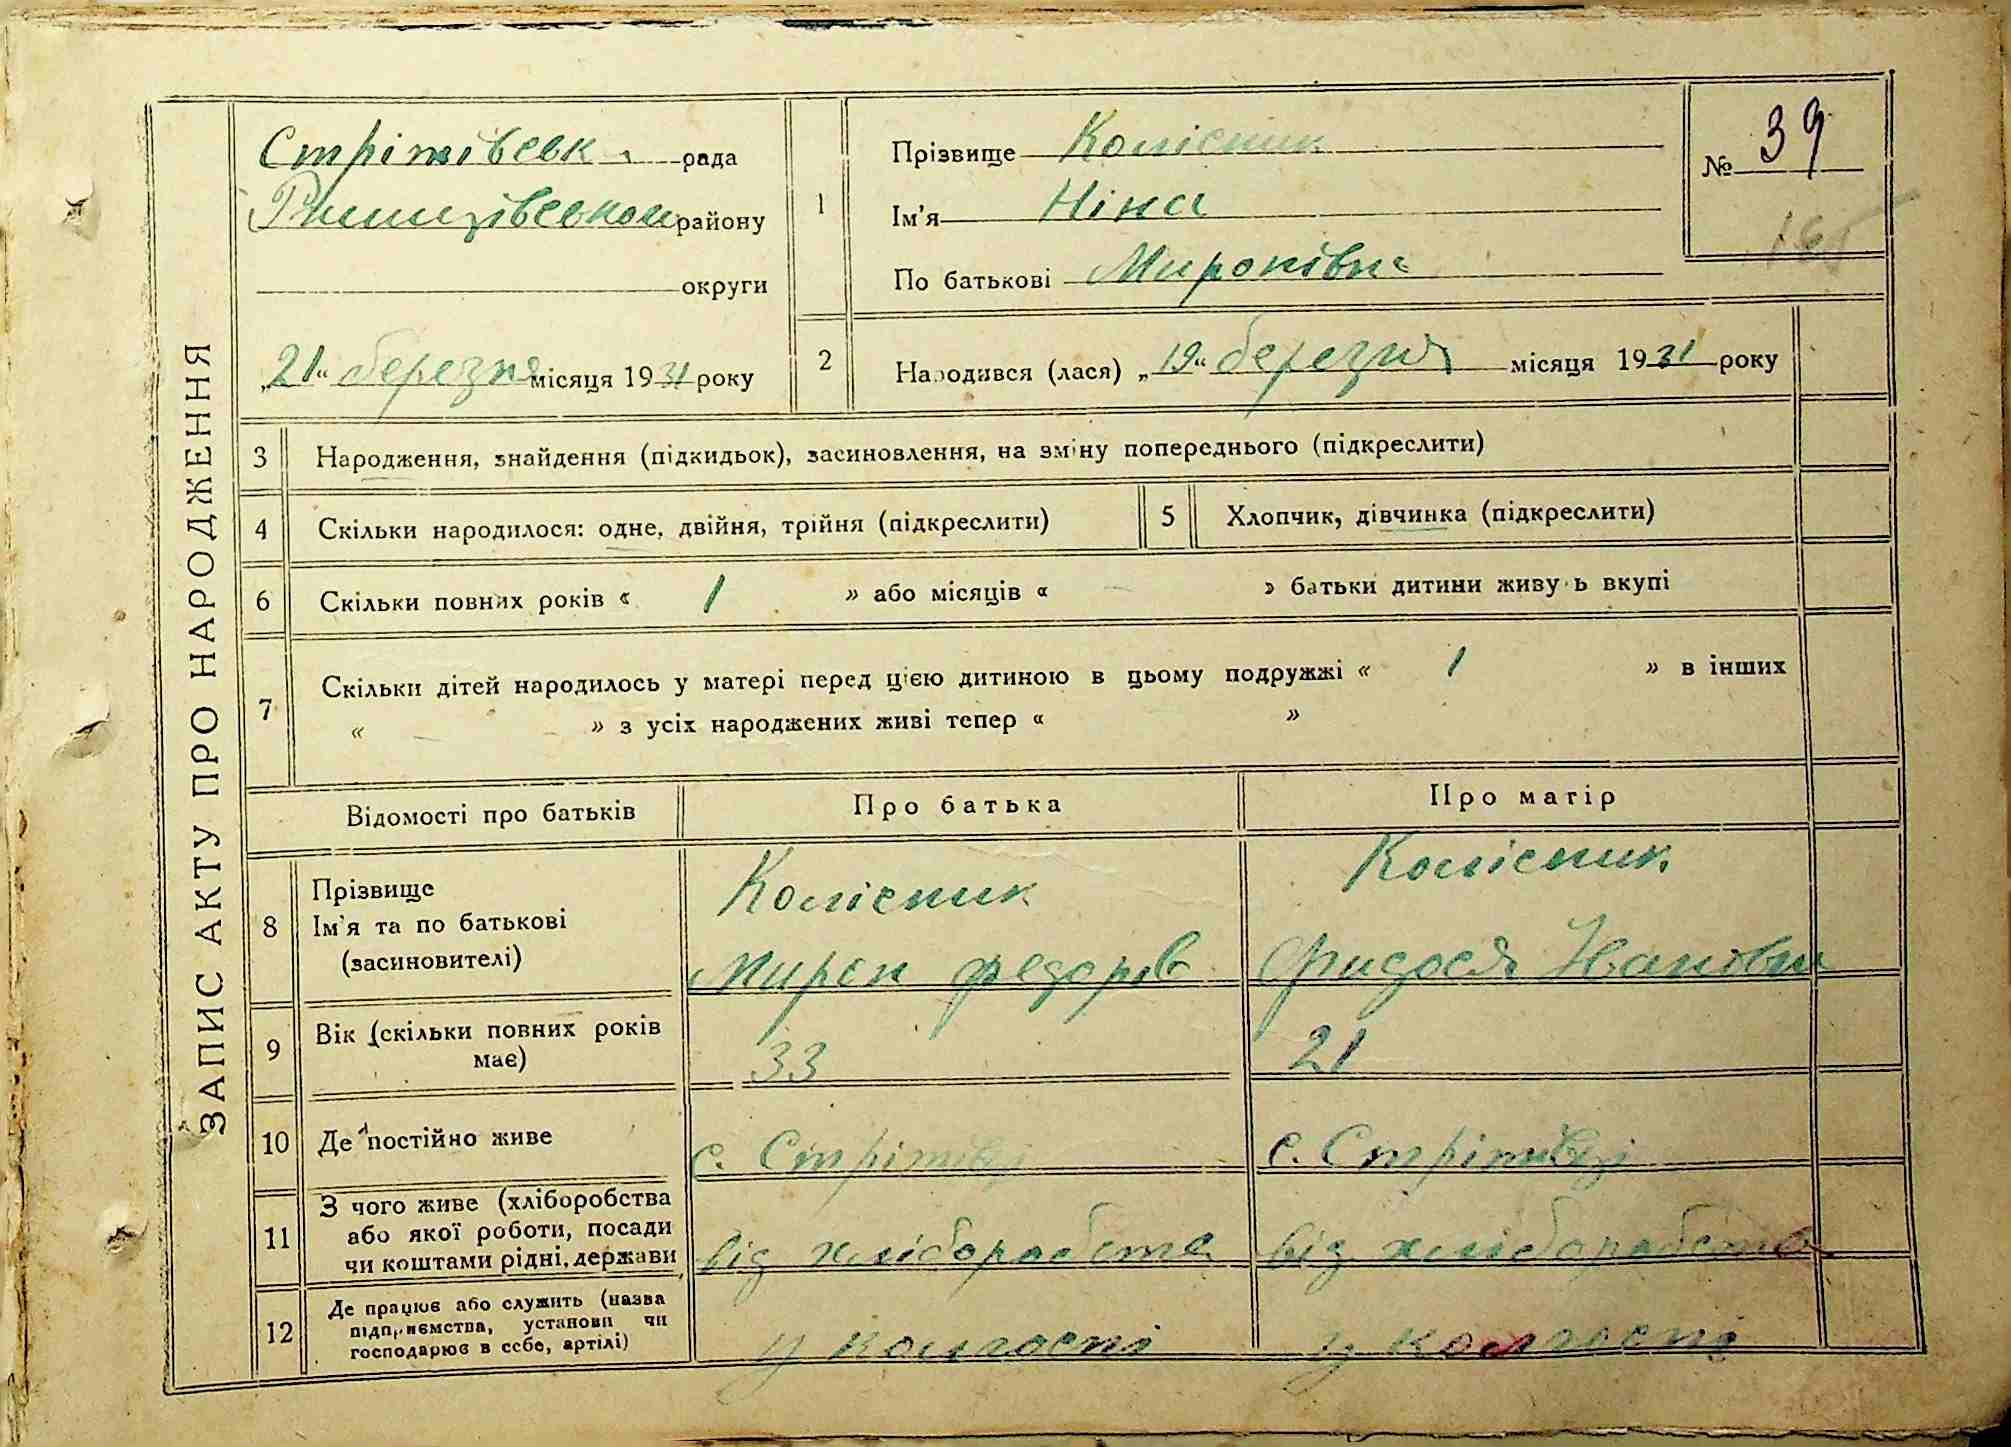 ЗАПИС АКТУ ПРО НАРОДЖЕННЯ
Стрітівськ. рада
району
округи
„21“ березня місяця 1931 року
1
Прізвище Колісник
Ім'я Ніна
По батькові Миронівна
№ 39
165
2
Народився (лася) „19“ березня місяця 1931 року
3 Народження, знайдення (підкидьок), засиновлення, на зміну попереднього (підкреслити)
4 Скільки народилося: одне, двійня, трійня (підкреслити)
5 Хлопчик, дівчинка (підкреслити)
6 Скільки повних років « 1 » або місяців « — » батьки дитини живуть вкупі
7 Скільки дітей народилось у матері перед цією дитиною в цьому подружжі « 1 » в інших
« — » з усіх народжених живі тепер « »
Відомості про батьків Про батька Про матір
8 Прізвище
Ім'я та по батькові
(засиновителі)
Колісник
Мирон Федорів
Колісник
Фидося Іванівна
9 Вік (скільки повних років
має)
33
21
10 Де постійно живе
с. Стрітівці
с. Стрітівці
11 З чого живе (хліборобства
або якої роботи, посади
чи коштами рідні, держави
від хліборобства
від хліборобства
12 Де працює або служить (назва
підприємства, установи чи
господарює в себе, артілі)
у колгоспі
у колгоспі